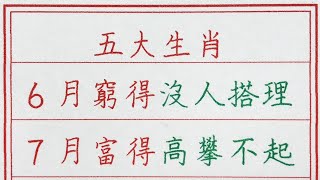 五大生肖
6月窮得沒人搭理
7月富得高攀不起